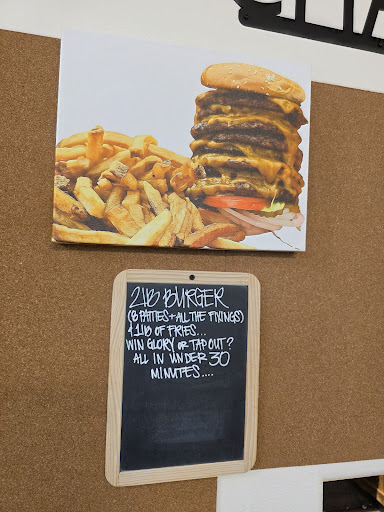 2LB BURGER
(8 PATTIES + ALL THE FIXINGS)
+ 1LB OF FRIES...
WIN GLORY OR TAP OUT?
ALL IN UNDER 30
MINUTES....